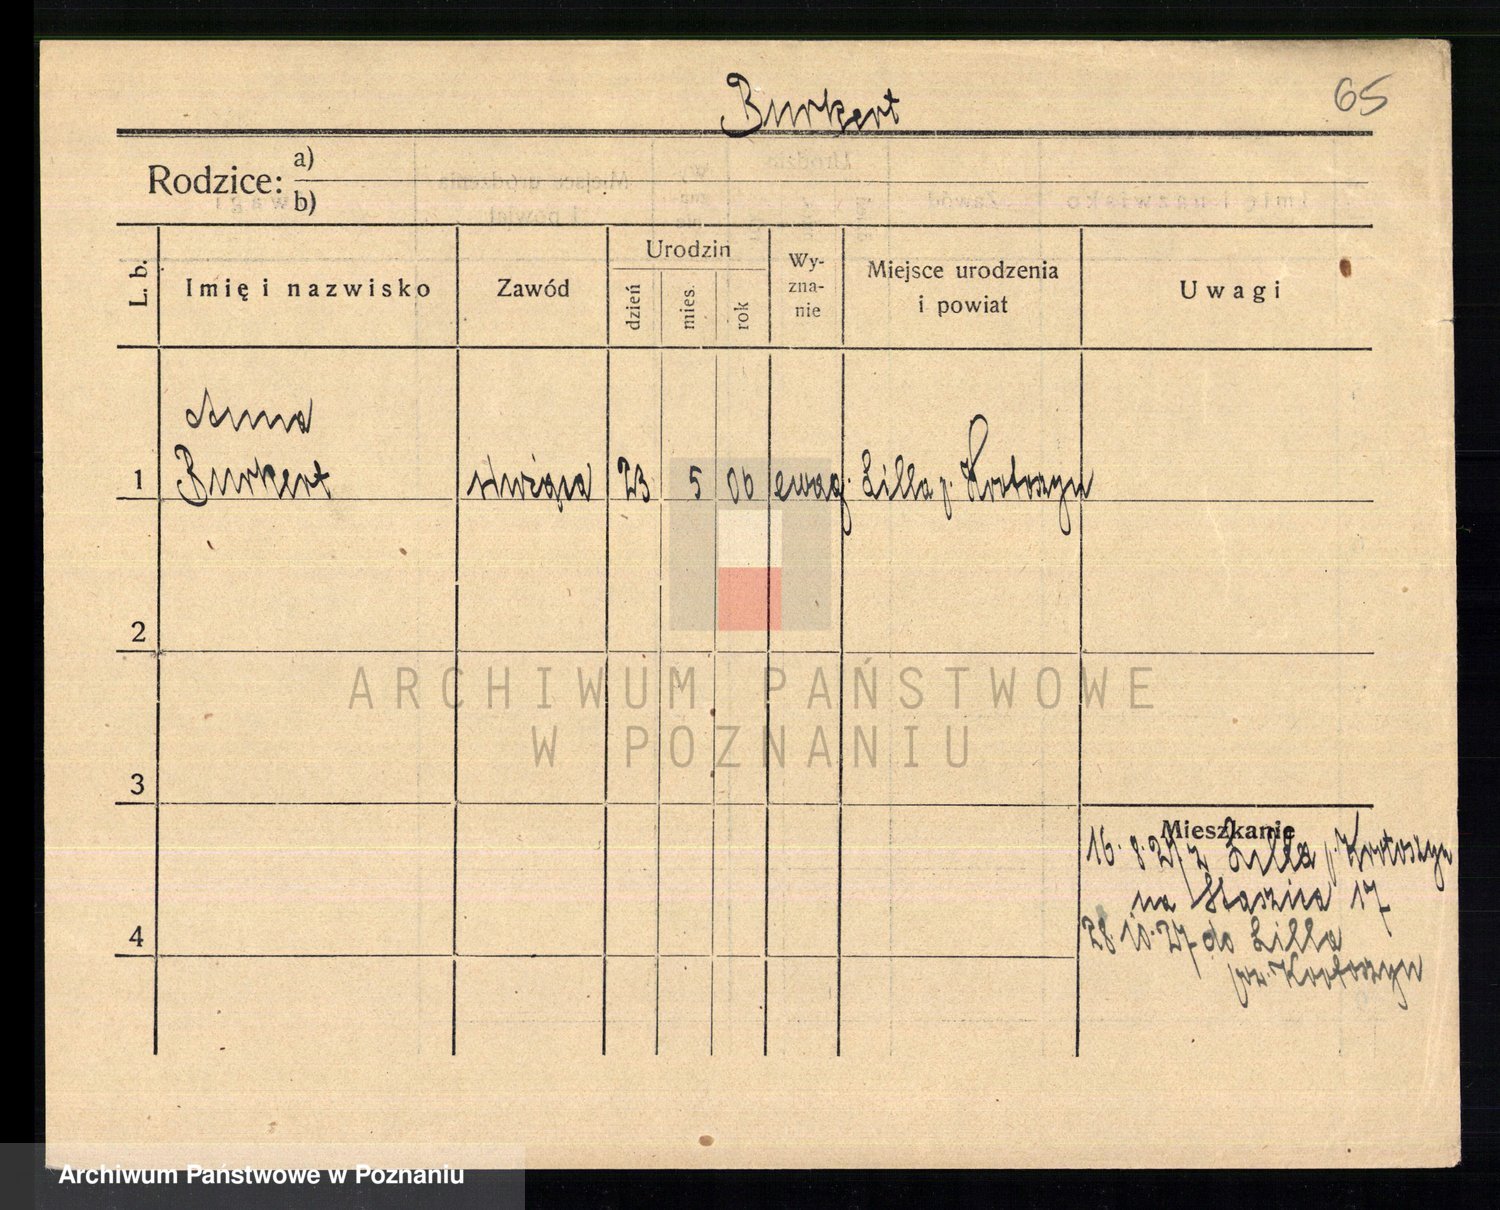 Burkert
65
Rodzice: a)
b)
L. b.
Imię i nazwisko
Zawód
Urodzin
dzień
mies.
rok
Wy-
zna-
nie
Miejsce urodzenia
i powiat
Uwagi
Anna
1 Burkert służąca 23 5 06 ewag. Lilla p. Krotoszyn
2
3
4
Mieszkanie
16. 8. 27 z Lilla p. Krotoszyn
na 17
28 10. 27 do Lilla
Krotoszyn
ARCHIWUM PAŃSTWOWE
W POZNANIU
Archiwum Państwowe w Poznaniu